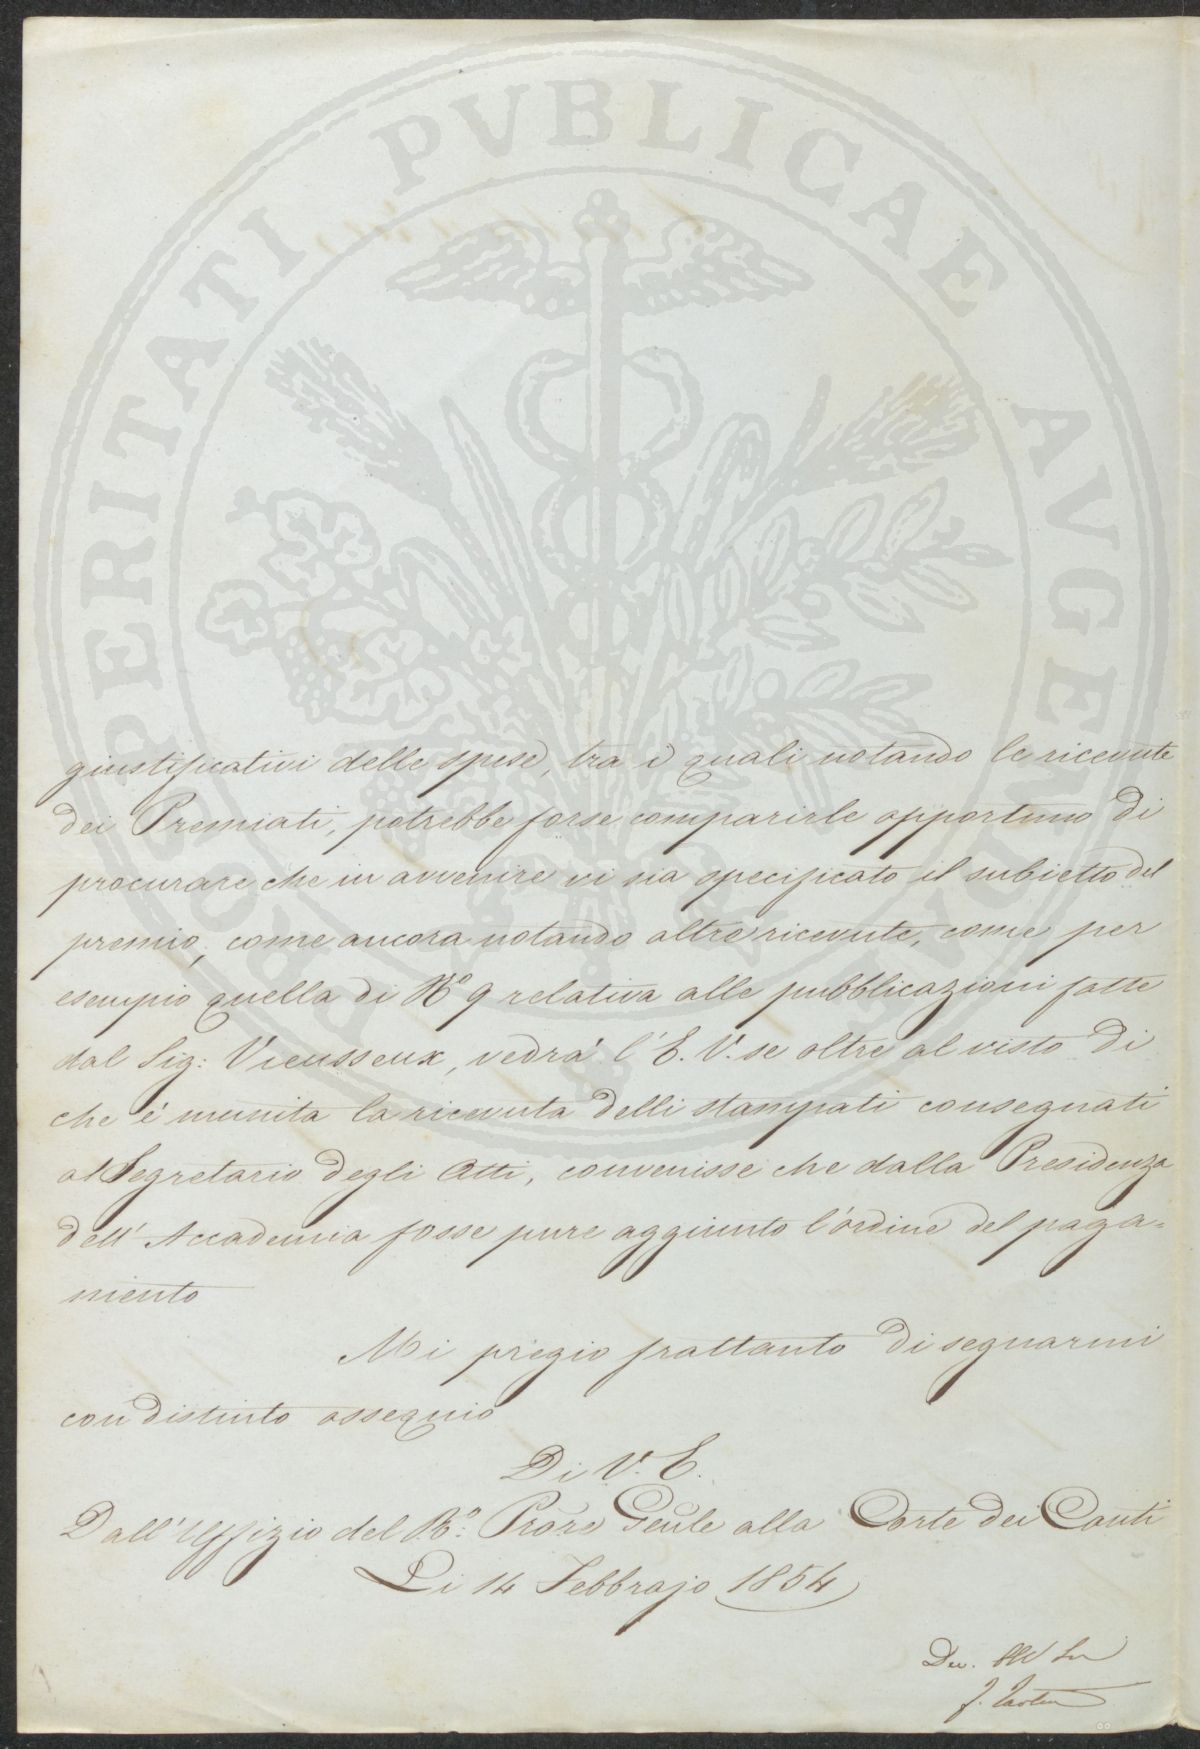 PROSPERITATI PVBLICAE AVGENDAE
giustificativi delle spese, tra i quali notando le ricevute
dei Premiati, potrebbe forse comparirle opportuno di
procurare che in avvenire vi sia specificato il subietto del
premio, come ancora notando altre ricevute, come per
esempio quella di N.º 9 relativa alle pubblicazioni fatte
dal Sig: Vieusseux, vedrà l'E. V. se oltre al visto di
che è munita la ricevuta delli stampati consegnati
al Segretario degli Atti, convenisse che dalla Presidenza
dell'Accademia fosse pure aggiunto l'ordine del paga=
mento
Mi pregio frattanto di segnarmi
con distinto ossequio
Di V. E.
Dall'Uffizio del R.º Prore Genle alla Corte dei Conti
Li 14 Febbrajo 1854